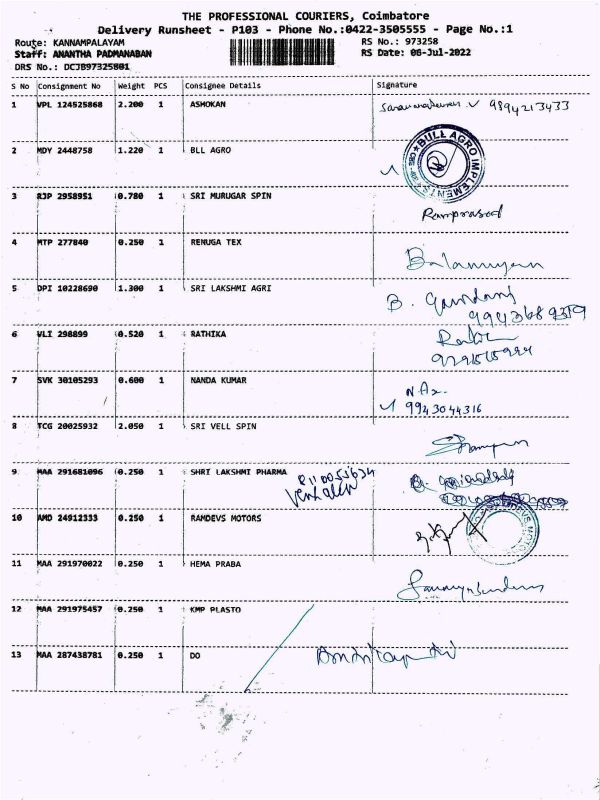 THE PROFESSIONAL COURIERS, Coimbatore
Delivery Runsheet - P103 - Phone No.:0422-3505555 - Page No.:1
Route: KANNAMPALAYAM RS No.: 973258
Staff: ANANTHA PADMANABAN RS Date: 06-Jul-2022
DRS No.: DCJB97325801
S No Consignment No Weight PCS Consignee Details Signature
1 VPL 124525868 2.200 1 ASHOKAN 9894213433
2 MDY 2448758 1.220 1 BLL AGRO BULL AGRO IMPLEMENTS
3 RJP 2958951 0.780 1 SRI MURUGAR SPIN Ramprasad
4 MTP 277840 0.250 1 RENUGA TEX Balamurugan
5 DPI 10228690 1.300 1 SRI LAKSHMI AGRI B.
6 VLI 298899 0.520 1 RATHIKA
7 SVK 30105293 0.600 1 NANDA KUMAR 9943044316
8 TCG 20025932 2.050 1 SRI VELL SPIN
9 MAA 291681096 0.250 1 SHRI LAKSHMI PHARMA
10 AMD 24912333 0.250 1 RAMDEVS MOTORS
11 MAA 291970022 0.250 1 HEMA PRABA
12 MAA 291975457 0.250 1 KMP PLASTO
13 MAA 287438781 0.250 1 DO